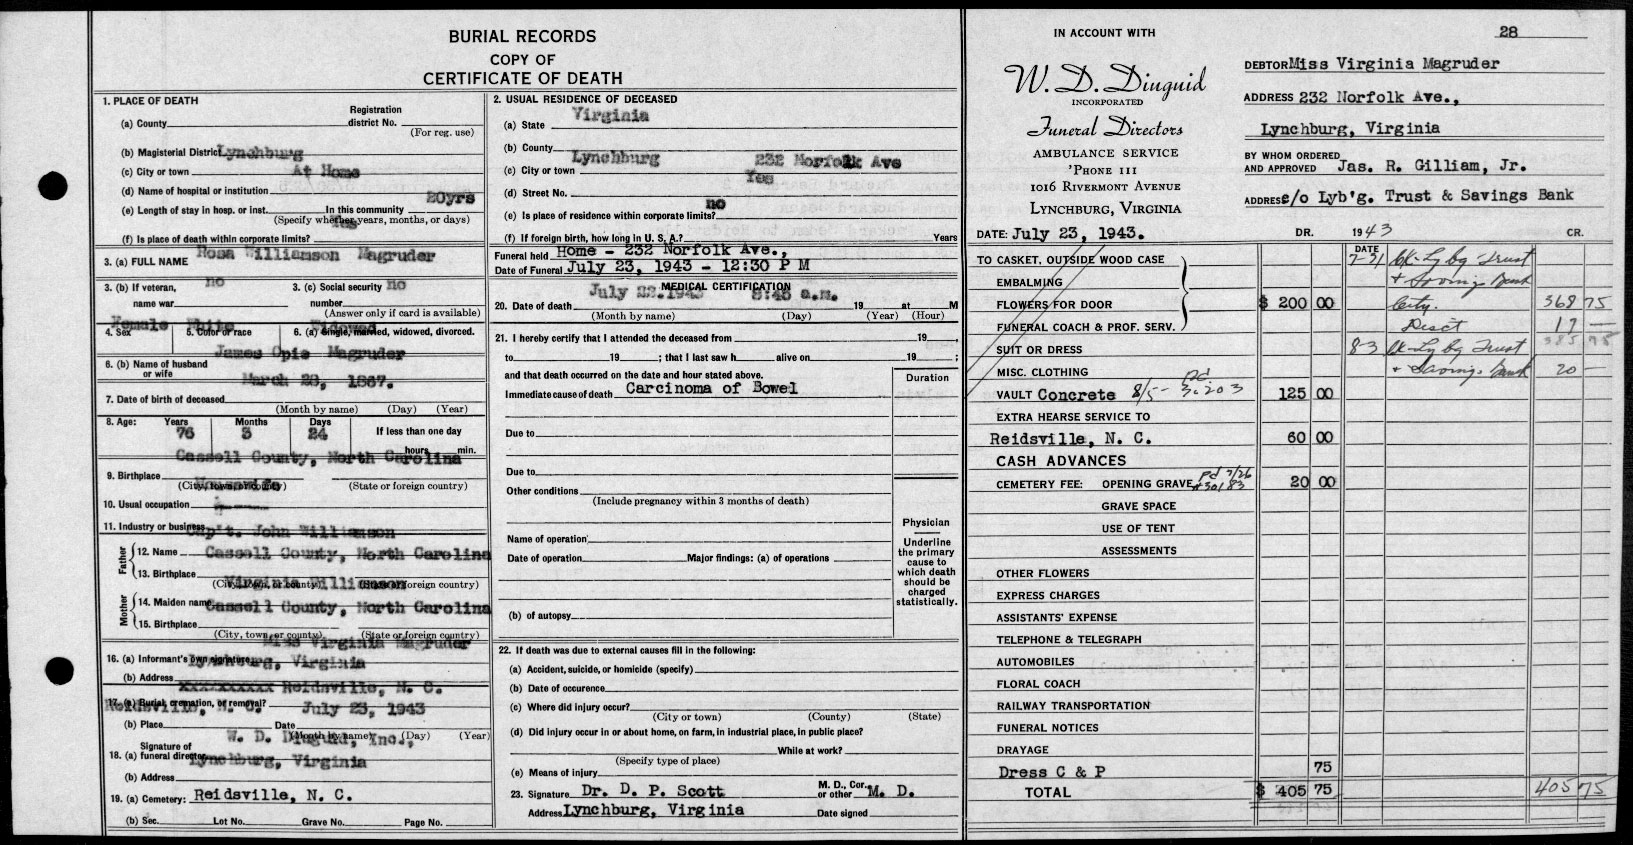 BURIAL RECORDS
COPY OF
CERTIFICATE OF DEATH
1. PLACE OF DEATH
(a) County Registration district No.
(For reg. use)
(b) Magisterial District Lynchburg
(c) City or town At Home
(d) Name of hospital or institution
(e) Length of stay in hosp. or inst. In this community 20yrs
(Specify whether years, months, or days)
(f) Is place of death within corporate limits? Yes
3. (a) FULL NAME Rosa Williamson Magruder
3. (b) If veteran, name war no 3. (c) Social security number no
(Answer only if card is available)
4. Sex Female 5. Color or race White 6. (a) Single, married, widowed, divorced. Widowed
6. (b) Name of husband or wife James Opie Magruder
7. Date of birth of deceased March 28, 1867.
(Month by name) (Day) (Year)
8. Age: Years Months Days If less than one day
76 3 24 hours min.
9. Birthplace Cassell County, North Carolina
(City, town, or county) (State or foreign country)
10. Usual occupation
11. Industry or business
Father
12. Name Cap't. John Williamson
13. Birthplace Cassell County, North Carolina
(City, town, or county) (State or foreign country)
Mother
14. Maiden name Virginia Williamson
15. Birthplace Cassell County, North Carolina
(City, town, or county) (State or foreign country)
16. (a) Informant's own signature Miss Virginia Magruder
(b) Address Lynchburg, Virginia
17. (a) Burial, cremation, or removal? xxxxxxxxxx Reidsville, N. C.
(b) Place Reidsville, N. C. Date July 23, 1943
(Month by name) (Day) (Year)
18. (a) Signature of funeral director W. D. Diuguid, Inc.,
(b) Address Lynchburg, Virginia
19. (a) Cemetery: Reidsville, N. C.
(b) Sec. Lot No. Grave No. Page No.
2. USUAL RESIDENCE OF DECEASED
(a) State Virginia
(b) County
(c) City or town Lynchburg
(d) Street No. 232 Norfolk Ave
(e) Is place of residence within corporate limits? Yes
(f) If foreign birth, how long in U. S. A.? no Years
Funeral held Home - 232 Norfolk Ave.,
Date of Funeral July 23, 1943 - 12:30 P M
MEDICAL CERTIFICATION
20. Date of death July 22.1943 19 at 5:45 a.m. M
(Month by name) (Day) (Year) (Hour)
21. I hereby certify that I attended the deceased from 19 ,
to 19 ; that I last saw h alive on 19 ;
and that death occurred on the date and hour stated above. Duration
Immediate cause of death Carcinoma of Bowel
Due to
Due to
Other conditions
(Include pregnancy within 3 months of death)
Name of operation
Date of operation Major findings: (a) of operations
(b) of autopsy
Physician
Underline the primary cause to which death should be charged statistically.
22. If death was due to external causes fill in the following:
(a) Accident, suicide, or homicide (specify)
(b) Date of occurence
(c) Where did injury occur?
(City or town) (County) (State)
(d) Did injury occur in or about home, on farm, in industrial place, in public place?
While at work?
(Specify type of place)
(e) Means of injury
23. Signature Dr. D. P. Scott M. D., Cor. or other M. D.
Address Lynchburg, Virginia Date signed
IN ACCOUNT WITH
W. D. Diuguid
INCORPORATED
Funeral Directors
AMBULANCE SERVICE
'PHONE 111
1016 RIVERMONT AVENUE
LYNCHBURG, VIRGINIA
28
DEBTOR Miss Virginia Magruder
ADDRESS 232 Norfolk Ave.,
Lynchburg, Virginia
BY WHOM ORDERED AND APPROVED Jas. R. Gilliam, Jr.
ADDRESS c/o Lyb'g. Trust & Savings Bank
DATE: July 23, 1943. DR. 1943 CR.
DATE
TO CASKET, OUTSIDE WOOD CASE 7-31 ck-Lybg Trust
EMBALMING + Savings Bank
FLOWERS FOR DOOR $ 200 00 City. 368 75
FUNERAL COACH & PROF. SERV. Disct 17 —
SUIT OR DRESS 8-3 ck-Lybg Trust 385 75
MISC. CLOTHING + Savings Bank 20 —
VAULT Concrete 8/5-- pd 3.203 125 00
EXTRA HEARSE SERVICE TO
Reidsville, N. C. 60 00
CASH ADVANCES
CEMETERY FEE: OPENING GRAVE pd 7/26 #30183 20 00
GRAVE SPACE
USE OF TENT
ASSESSMENTS
OTHER FLOWERS
EXPRESS CHARGES
ASSISTANTS' EXPENSE
TELEPHONE & TELEGRAPH
AUTOMOBILES
FLORAL COACH
RAILWAY TRANSPORTATION
FUNERAL NOTICES
DRAYAGE
Dress C & P 75
TOTAL $ 405 75 405 75